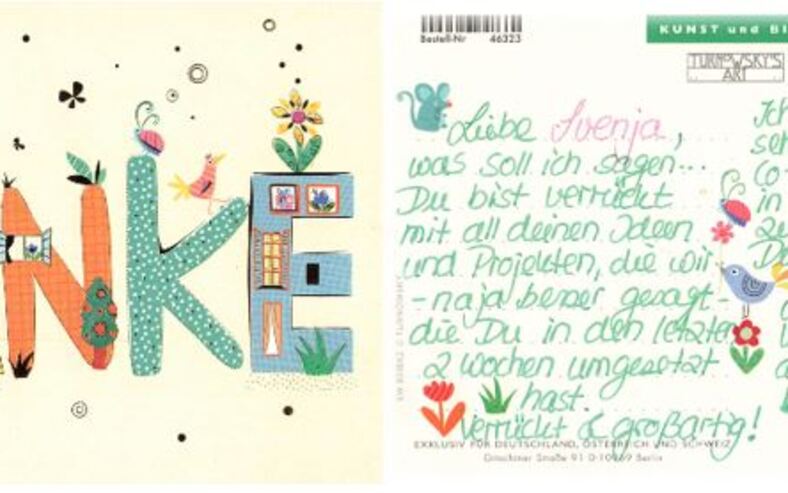 NKE
Bestell-Nr 46323
KUNST und BI
TURNOWSKY'S
ART
Liebe Svenja,
was soll ich sagen...
Du bist verrückt
mit all deinen Ideen
und Projekten, die wir
- naja besser gesagt -
die Du in den letzten
2 Wochen umgesetzt
hast.
Verrückt & großartig!
Ich
in
EXKLUSIV FÜR DEUTSCHLAND, ÖSTERREICH UND SCHWEIZ
Gitschiner Straße 91 D-10969 Berlin